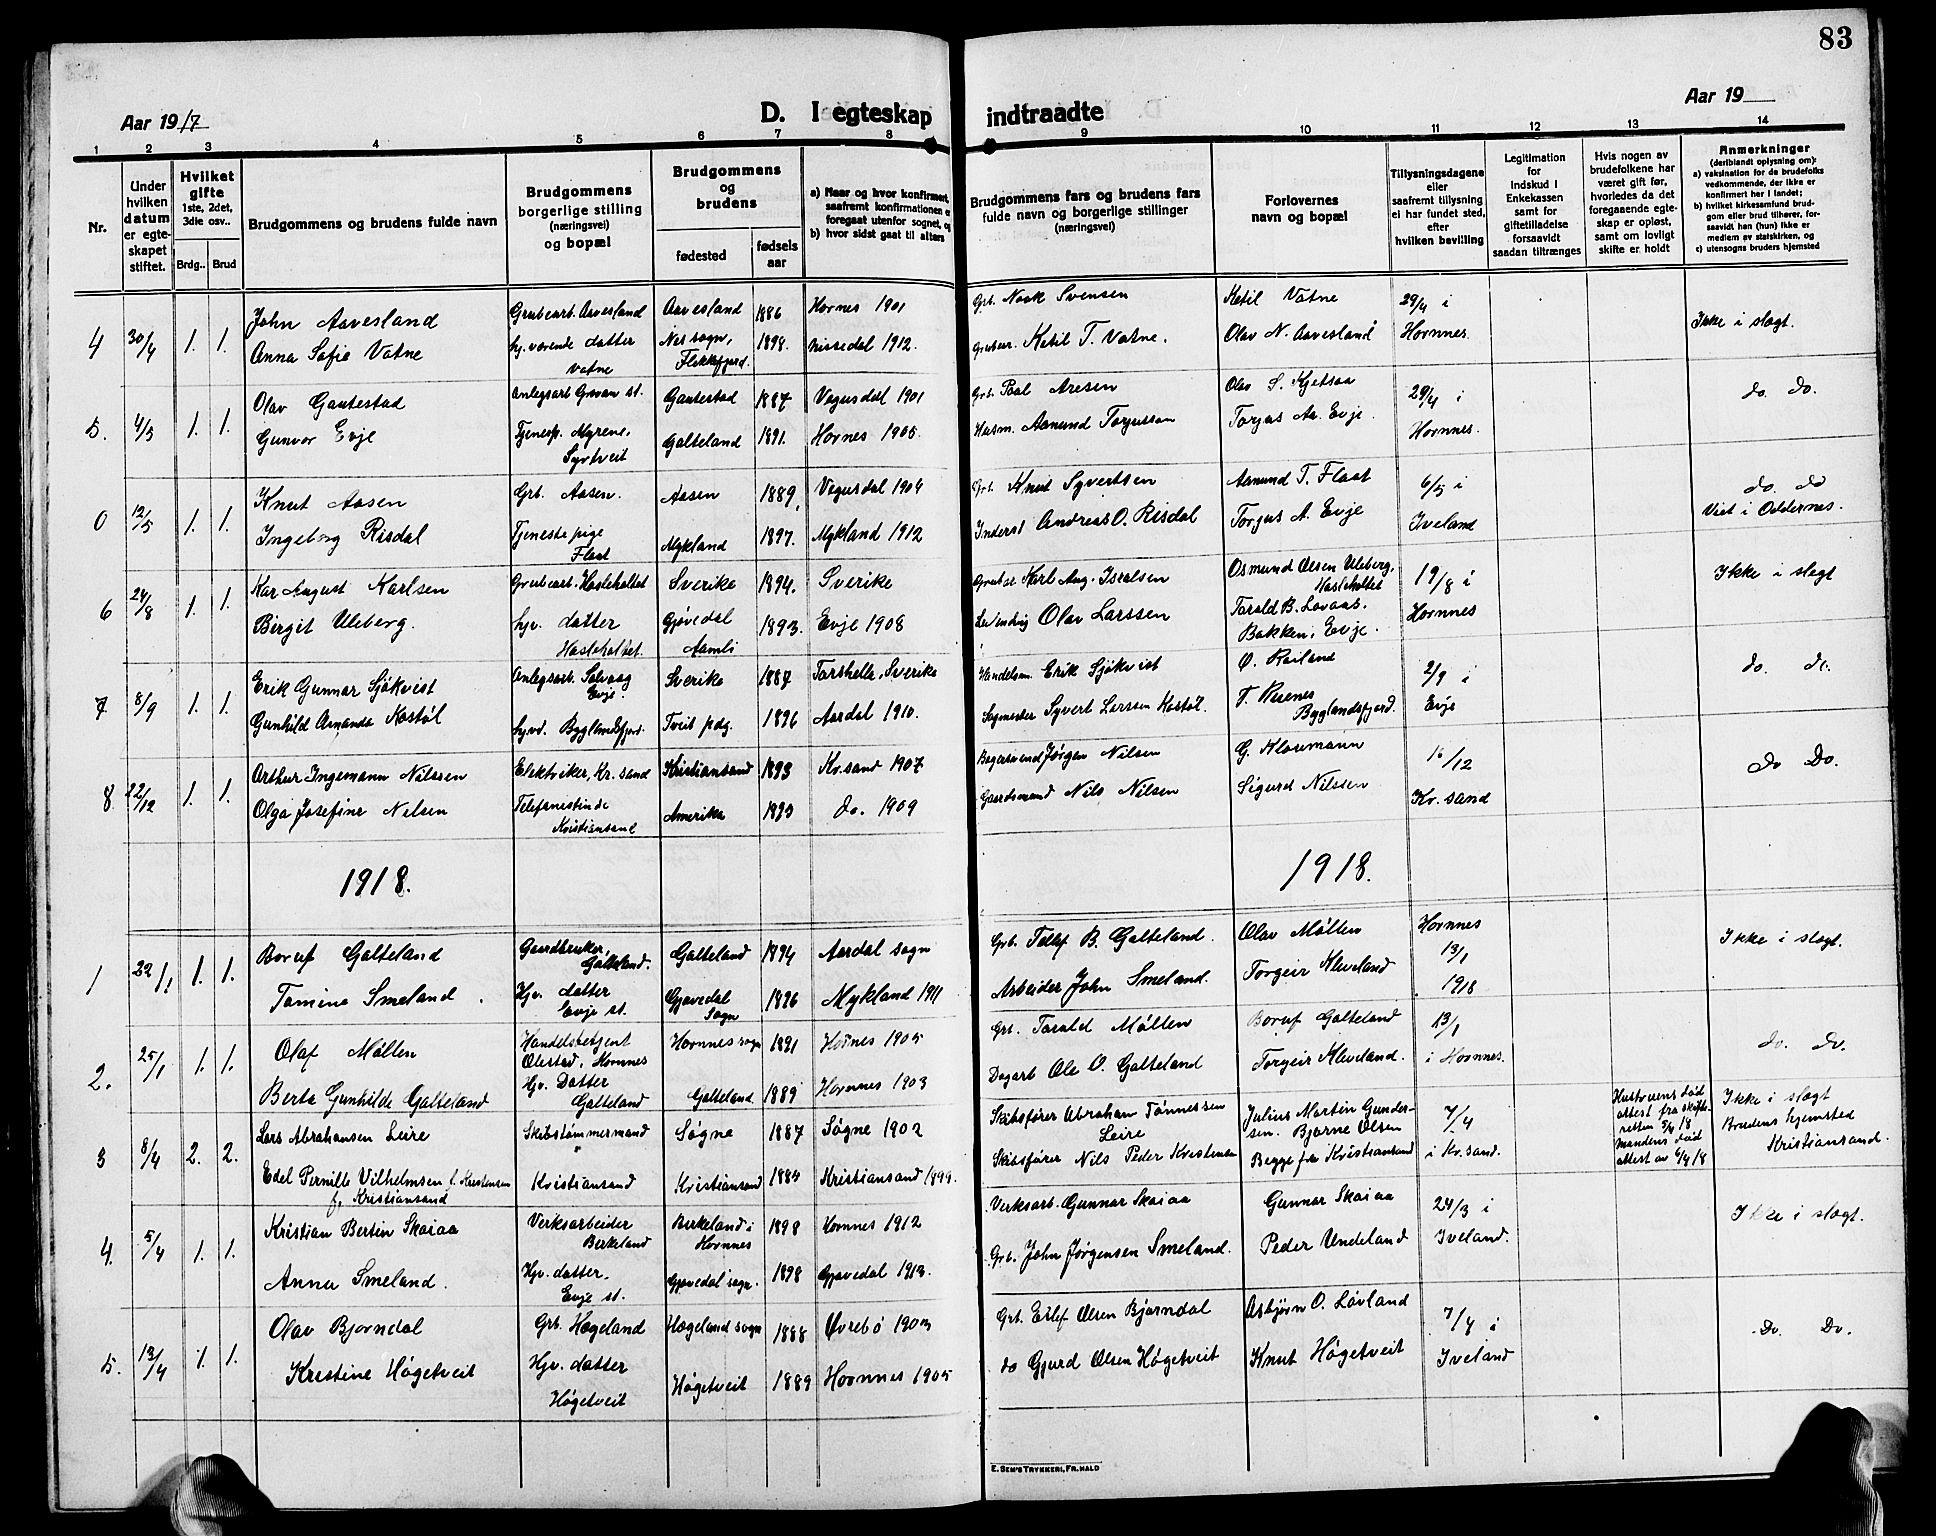 83
Aar 1917
D. I egteskap indtraadte
Aar 19
1 2 3 4 5 6 7 8 9 10 11 12 13 14
Nr.
Under hvilken datum er egteskapet stiftet.
Hvilket gifte 1ste, 2det, 3die osv..
Brdg.. Brud
Brudgommens og brudens fulde navn
Brudgommens borgerlige stilling (næringsvei) og bopæl
Brudgommens og brudens
fødested
fødselsaar
a) Naar og hvor konfirmert, saafremt konfirmationen er foregaat utenfor sognet, og
b) hvor sidst gaat til alters
Brudgommens fars og brudens fars fulde navn og borgerlige stillinger (næringsvei)
Forlovernes navn og bopæl
Tillysningsdagene eller saafremt tillysning ei har fundet sted, efter hvilken bevilling
Legitimation for Indskud i Enkekassen samt for giftetilladelse forsaavidt saadan tiltrænges
Hvis nogen av brudefolkene har været gift før, hvorledes da det foregaaende egteskap er opløst, samt om lovligt skifte er holdt
Anmerkninger (deriblandt oplysning om):
a) vaksination for de brudefolks vedkommende, der ikke er konfirmert her i landet;
b) hvilket kirkesamfund brudgom eller brud tilhører, forsaavidt han (hun) ikke er medlem av statskirken, og
c) utensogns bruders hjemsted
4 30/4 1. 1. John Aavesland Grubearb. Aavesland Aavesland 1886 Hornes 1901 Grb. Noak Svensen Ketil Vatne 29/4 i Hornnes. Ikke i slegt.
Anna Sofie Vatne hj. værende datter Vatne Nes sogn, Flekkefjord. 1898. Nissedal 1912. Grubear. Ketil T. Vatne. Olav N. Aavesland
5. 4/5 1. 1. Olav Gautestad Anlegsarb. Grovan st. Gautestad 1887 Vegusdal 1901 Grb. Paal Aresen Olav S. Kjetsaa 29/4 i Hornnes. do. do.
Gunvor Evje Tjenesp. Myrene, Syrtveit Galteland 1891. Hornes 1905. Husm. Aamund Torgussen Torgus Aa. Evje.
0 12/5 1. 1. Knut Aasen Grb. Aasen. Aasen 1889, Vegusdal 1904 Grb. Knut Syvertsen Aamund T. Flaat 6/5 i Iveland do. do
Ingeborg Risdal Tjenestepige Flaat Mykland 1897. Mykland 1912 Inderst Andreas O. Risdal Torgus A. Evje Viet i Oddernes.
6 24/8 1. 1. Kar August Karlsen Grubearb. Hasleholtet Sverike 1894. Sverike Grubear. Karl Aug. Isralsen Osmund Olsen Uleberg, Hasleholtet 19/8 i Hornnes Ikke i slegt
Birgit Uleberg. hjv. datter Hasleholtet. Gjøvedal Aamli 1893. Evje 1908 Olav Larssen Tarald B. Lovaas. Bakken, Evje.
7 8/9 1. 1. Erik Gunnar Sjøkvist Anlegsarb. Solvaag Evje. Sverike 1887 Torshella, Sverike Handelsm. Erik Sjøkvist O. Reiland 2/9 i Evje do. do.
Gunhild Amanda Kostøl hjvd. Byglandsfjord. Tveit pdg. 1896 Aardal 1910. Sagmester Syvert Larsen Kostøl. T. Ruenes Byglandsfjord.
8 22/12 1. 1. Arthur Ingemann Nilssen Elektriker, Kr. sand Kristiansand 1893 Kr. sand 1907 Bagersvend Jørgen Nilsen G. Klosemann 16/12 Kr. sand do Do.
Olga Josefine Nelsen Telefonistinde Kristiansand Amerika 1893 do. 1909 Gaardsmand Nils Nilsen Sigurd Nilssen
1918. 1918.
1 22/1 1. 1. Boruf Galteland Gaardbruker, Galteland. Galteland 1894 Aardal sogn Grb. Tellef B. Galteland. Olav Møllen Hornnes 13/1 1918 Ikke i slegt.
Tomine Smeland. Hjv. datter Evje st. Gjøvedal Sogn 1896 Mykland 1911 Arbeider John Smeland. Torgeir Kleveland
2. 25/1 1. 1. Olaf Møllen Handelsbetjent Ølestad, Hornnes Hornnes sogn 1891 Hornes 1905 Grb. Tarald Møllen Boruf Galteland 13/1 i Hornnes. do. do.
Berta Gunhilde Galteland Hjv. Datter Galteland Galteland 1889 Hornnes 1903 Dagarb Ole O. Galteland Torgeir Kleveland.
3 8/4 2. 2. Lars Abrahansen Leire Skibstømmermand Søgne 1887 Søgne 1902 Skibsfører Abrahan Tønnessen Leire Julius Martin Gundersen. Bjarne Olsen 7/4 i Kr. sand. Hustruens død attest fra skifteretten 5/4 18 Ikke i slegt Brudens hjemsted Kristiansand.
Edel Pernille Vilhelmsen f. Kristensen f. Kristiansand Kristiansand Kristiansand 1885 Kristiansand 1899. Skibsfører Nils Peder Kristensen Begge fra Kristiansand Mandens død attest av 6/4 18
4. 5/4 1. 1. Kristian Bertin Skaiaa Verksarbeider Birkeland Birkeland i Hornnes 1898 Hornnes 1912 Verksarb. Gunnar Skaiaa Gunnar Skaiaa 24/3 i Iveland. Ikke i slegt.
Anna Smeland. Hjv. datter. Evje st. Gjøvedal sogn. 1898 Gjøvedal 1913. Grb. John Jørgensen Smeland. Peder Undeland
5. 13/4 1. 1. Olav Bjorndal Grb. Hægeland Hægeland sogn 1888 Øvrebø 1903 Grb. Eilef Olsen Bjorndal Asbjørn O. Løvland 7/4 i Iveland Do. Do.
Kristine Høgetveit Hjv. datter Høgetveit Høgetveit 1889 Hornnes 1905 do Gjurd Olsen Høgetveit Knut Høgetveit
E. SEM'S TRYKKERI, FR.HALD